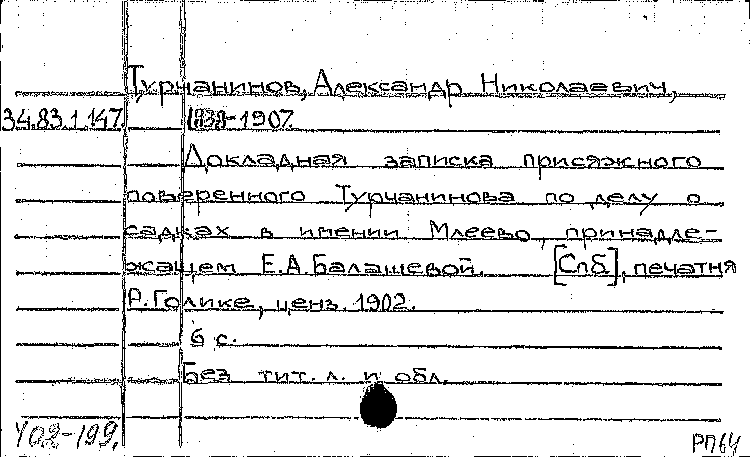 Турчанинов, Александр Николаевич,
34.83.1.147. 1838-1907.
Докладная записка присяжного
поверенного Турчанинова по делу о
садках в имении Млеево, принадле-
жащем Е.А.Балашевой. [Спб], печатня
Р.Голике, ценз. 1902.
6 с.
Без тит. л. и обл.
У02-199.
РП64